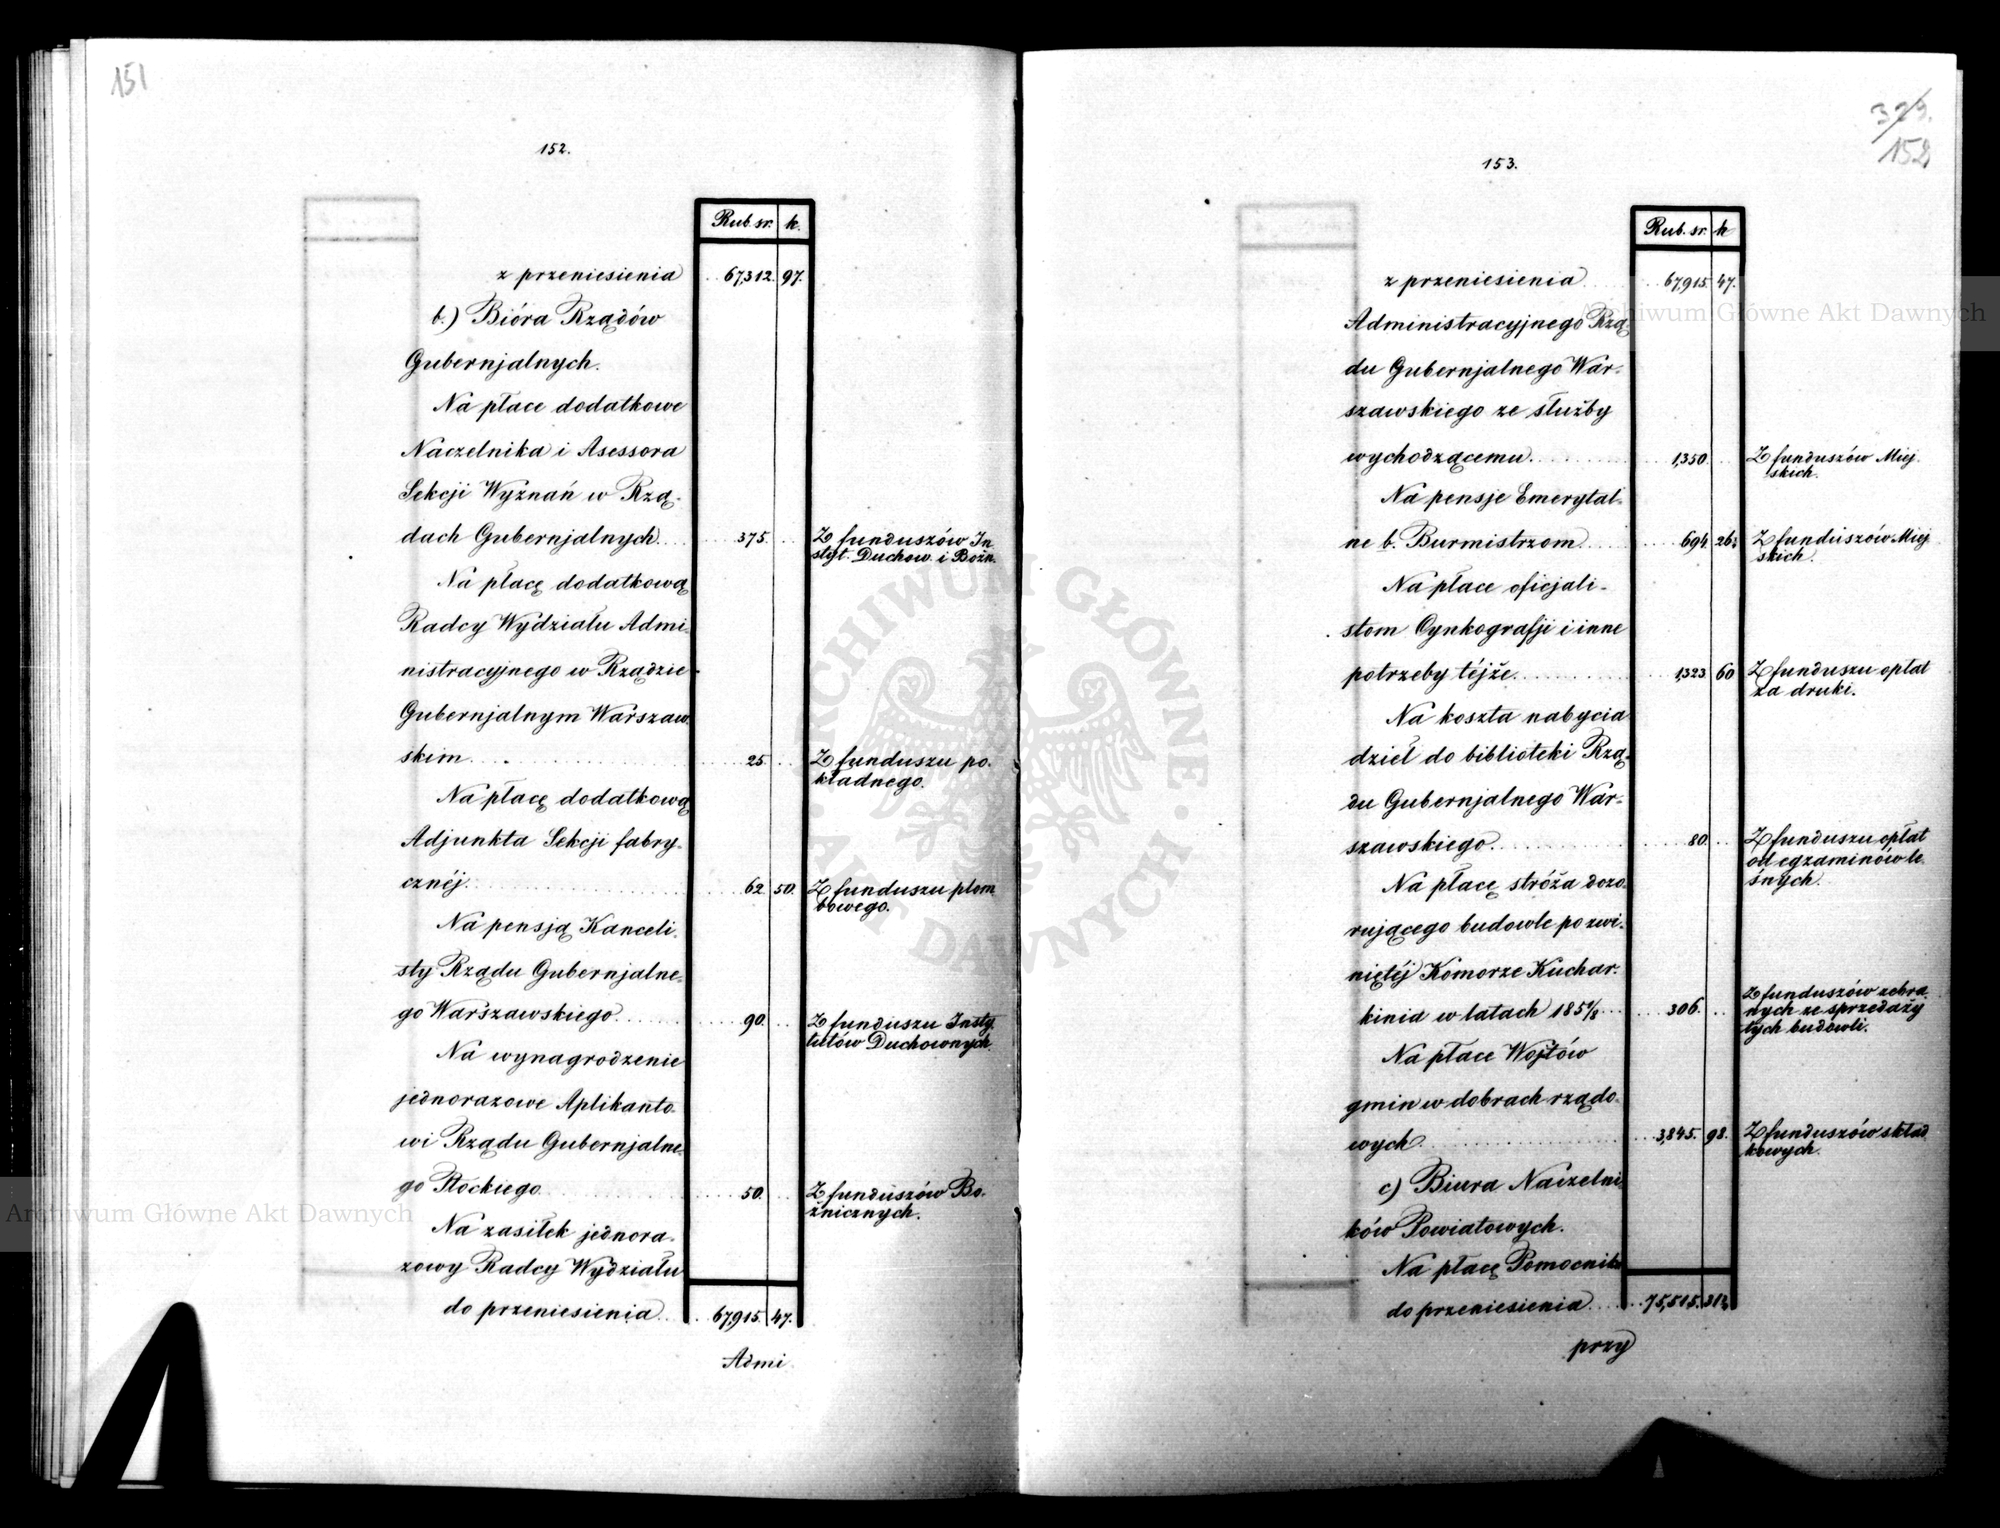 151
152.
Rub. sr. k.
z przeniesienia 67,312. 97.
b.) Bióra Rządów
Gubernjalnych.
Na płace dodatkowe
Naczelnika i Asessora
Sekcji Wyznań w Rzą-
dach Gubernjalnych 375. Z funduszów In
styt. Duchow. i Bożn.
Na płacę dodatkową
Radcy Wydziału Admi-
nistracyjnego w Rządzie
Gubernjalnym Warszaw-
skim 25. Z funduszu po-
kładnego.
Na płacę dodatkową
Adjunkta Sekcji fabry-
cznéj 62. 50. Z funduszu plom
bowego.
Na pensją Kanceli-
sty Rządu Gubernjalne-
go Warszawskiego 90. Z funduszu Insty
tutów Duchownych.
Na wynagrodzenie
jednorazowe Aplikanto-
wi Rządu Gubernjalne-
go Płockiego 50. Z funduszów Bo-
żnicznych.
Na zasiłek jednora-
zowy Radcy Wydziału
do przeniesienia 67,915. 47.
Admi
329.
152
153.
Rub. sr. k
z przeniesienia 67,915. 47.
Administracyjnego Rzą-
du Gubernjalnego War-
szawskiego ze służby
wychodzącemu. 1,350. Z funduszów Miej-
skich.
Na pensje Emerytal-
ne b. Burmistrzom 694. 26½ Z funduszów Miej
skich.
Na płace oficjali-
stom Cynkografji i inne
potrzeby téjże. 1,323. 60 Z funduszu opłat
za druki.
Na koszta nabycia
dzieł do biblioteki Rzą-
du Gubernjalnego War-
szawskiego. 80. Z funduszu opłat
od egzaminów le
śnych.
Na płacę stróża dozo-
rującego budowle po zwi-
niętéj Komorze Kuchar-
kinia w latach 185 306. Z funduszów zebra
nych ze sprzedaży
tych budowli.
Na płace Wojtów
gmin w dobrach rządo-
wych 3,845. 98. Z funduszów skład
kowych.
c) Biura Naczelni-
ków Powiatowych.
Na płacę Pomocnika
do przeniesienia 75,515. 31½
przy
Archiwum Główne Akt Dawnych
Archiwum Główne Akt Dawnych
ARCHIWUM GŁÓWNE AKT DAWNYCH